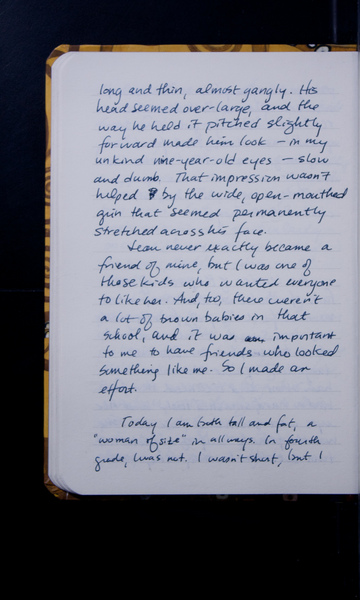 long and thin, almost gangly. His
head seemed over-large, and the
way he held it pitched slightly
forward made him look – in my
unkind nine-year-old eyes – slow
and dumb. That impression wasn't
helped by the wide, open-mouthed
grin that seemed permanently
stretched across his face.
Sean never exactly became a
friend of mine, but I was one of
those kids who wanted everyone
to like her. And, too, there weren't
a lot of brown babies in that
school, and it was important
to me to have friends who looked
something like me. So I made an
effort.
Today I am both tall and fat, a
"woman of size" in all ways. In fourth
grade, I was not. I wasn't short, but I